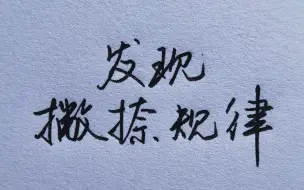 发现
撇捺规律